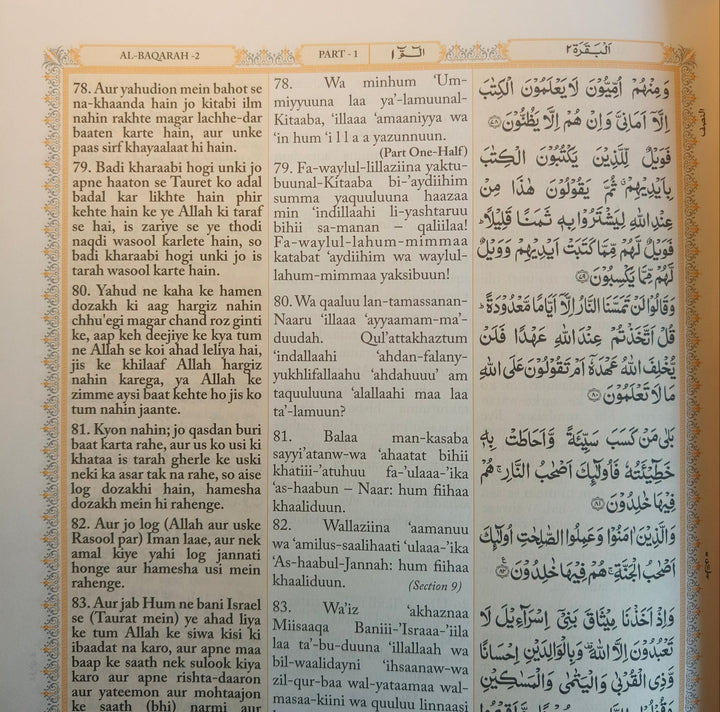 AL-BAQARAH -2
PART - 1
الٓـمّٓ ١
اَلْبَقَرَة ٢
78. Aur yahudion mein bahot se
na-khaanda hain jo kitabi ilm
nahin rakhte magar lachhe-dar
baaten karte hain, aur unke
paas sirf khayaalaat hi hain.
79. Badi kharaabi hogi unki jo
apne haaton se Tauret ko adal
badal kar likhte hain phir
kehte hain ke ye Allah ki taraf
se hai, is zariye se ye thodi
naqdi wasool karlete hain, so
badi kharaabi hogi unki jo is
tarah wasool karte hain.
80. Yahud ne kaha ke hamen
dozakh ki aag hargiz nahin
chhu'egi magar chand roz ginti
ke, aap keh deejiye ke kya tum
ne Allah se koi ahad leliya hai,
jis ke khilaaf Allah hargiz
nahin karega, ya Allah ke
zimme aysi baat kehte ho jis ko
tum nahin jaante.
81. Kyon nahin; jo qasdan buri
baat karta rahe, aur us ko usi ki
khataa is tarah gherle ke uski
neki ka asar tak na rahe, so aise
log dozakhi hain, hamesha
dozakh mein hi rahenge.
82. Aur jo log (Allah aur uske
Rasool par) Iman laae, aur nek
amal kiye yahi log jannati
honge aur hamesha usi mein
rahenge.
83. Aur jab Hum ne bani Israel
se (Taurat mein) ye ahad liya
ke tum Allah ke siwa kisi ki
ibaadat na karo, aur apne maa
baap ke saath nek sulook kiya
karo aur apne rishta-daaron
aur yateemon aur mohtaajon
ke saath (bhi) narmi aur
78. Wa minhum 'Um-
miyyuuna laa ya'-lamuunal-
Kitaaba, 'illaaa 'amaaniyya wa
'in hum 'i l l a a yazunnuun.
(Part One-Half)
79. Fa-waylul-lillaziina yaktu-
buunal-Kitaaba bi-'aydiihim
summa yaquuluuna haazaa
min 'indillaahi li-yashtaruu
bihii sa-manan – qaliilaa!
Fa-waylul-lahum-mimmaa
katabat 'aydiihim wa waylul-
lahum-mimmaa yaksibuun!
80. Wa qaaluu lan-tamassanan-
Naaru 'illaaa 'ayyaamam-ma'-
duudah. Qul'attakhaztum
'indallaahi 'ahdan-falany-
yukhlifallaahu 'ahdahuu' am
taquuluuna 'alallaahi maa laa
ta'-lamuun?
81. Balaa man-kasaba
sayyi'atanw-wa 'ahaatat bihii
khatiii-'atuhuu fa-'ulaaa-'ika
'as-haabun – Naar: hum fiihaa
khaaliduun.
82. Wallaziina 'aamanuu
wa 'amilus-saalihaati 'ulaaa-'ika
'As-haabul-Jannah: hum fiihaa
khaaliduun. (Section 9)
83. Wa'iz 'akhaznaa
Miisaaqa Baniii-'Israaa-'iila
laa ta'-bu-duuna 'illallaah wa
bil-waalidayni 'ihsaanaw-wa
zil-qur-baa wal-yataamaa wal-
masaa-kiini wa quuluu linnaasi
وَمِنْهُمْ اُمِّيُّوْنَ لَا يَعْلَمُوْنَ الْكِتٰبَ
اِلَّآ اَمَانِيَّ وَاِنْ هُمْ اِلَّا يَظُنُّوْنَ ﴿٧٨﴾
فَوَيْلٌ لِّلَّذِيْنَ يَكْتُبُوْنَ الْكِتٰبَ
بِاَيْدِيْهِمْ ثُمَّ يَقُوْلُوْنَ هٰذَا مِنْ
عِنْدِ اللّٰهِ لِيَشْتَرُوْا بِهٖ ثَمَنًا قَلِيْلًا ؕ
فَوَيْلٌ لَّهُمْ مِّمَّا كَتَبَتْ اَيْدِيْهِمْ وَوَيْلٌ
لَّهُمْ مِّمَّا يَكْسِبُوْنَ ﴿٧٩﴾
وَقَالُوْا لَنْ تَمَسَّنَا النَّارُ اِلَّآ اَيَّامًا مَّعْدُوْدَةً ؕ
قُلْ اَتَّخَذْتُمْ عِنْدَ اللّٰهِ عَهْدًا فَلَنْ
يُّخْلِفَ اللّٰهُ عَهْدَهٗٓ اَمْ تَقُوْلُوْنَ عَلَى اللّٰهِ
مَا لَا تَعْلَمُوْنَ ﴿٨٠﴾
بَلٰى مَنْ كَسَبَ سَيِّئَةً وَّاَحَاطَتْ بِهٖ
خَطِيْٓئَتُهٗ فَاُولٰٓئِكَ اَصْحٰبُ النَّارِ ۚ هُمْ
فِيْهَا خٰلِدُوْنَ ﴿٨١﴾
وَالَّذِيْنَ اٰمَنُوْا وَعَمِلُوا الصّٰلِحٰتِ اُولٰٓئِكَ
اَصْحٰبُ الْجَنَّةِ ۚ هُمْ فِيْهَا خٰلِدُوْنَ ﴿٨٢﴾
وَاِذْ اَخَذْنَا مِيْثَاقَ بَنِيْٓ اِسْرَآءِيْلَ لَا
تَعْبُدُوْنَ اِلَّا اللّٰهَ ۫ وَبِالْوَالِدَيْنِ اِحْسَانًا
وَّذِي الْقُرْبٰى وَالْيَتٰمٰى وَالْمَسٰكِيْنِ
النصف